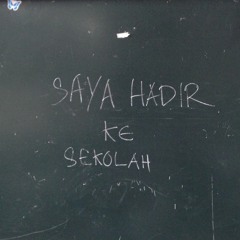 SAYA HADIR
KE
SEKOLAH